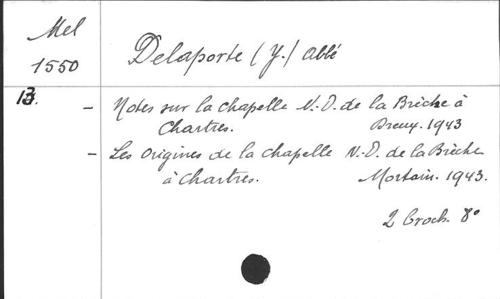 Mel
1550
Delaporte (Y.) abbé
13.
- Notes sur la chapelle N.-D. de la Brèche à
Chartres. Dreux. 1943
- Les Origines de la chapelle N.-D. de la Brèche
à Chartres. Mortain. 1943.
2 broch. 8°